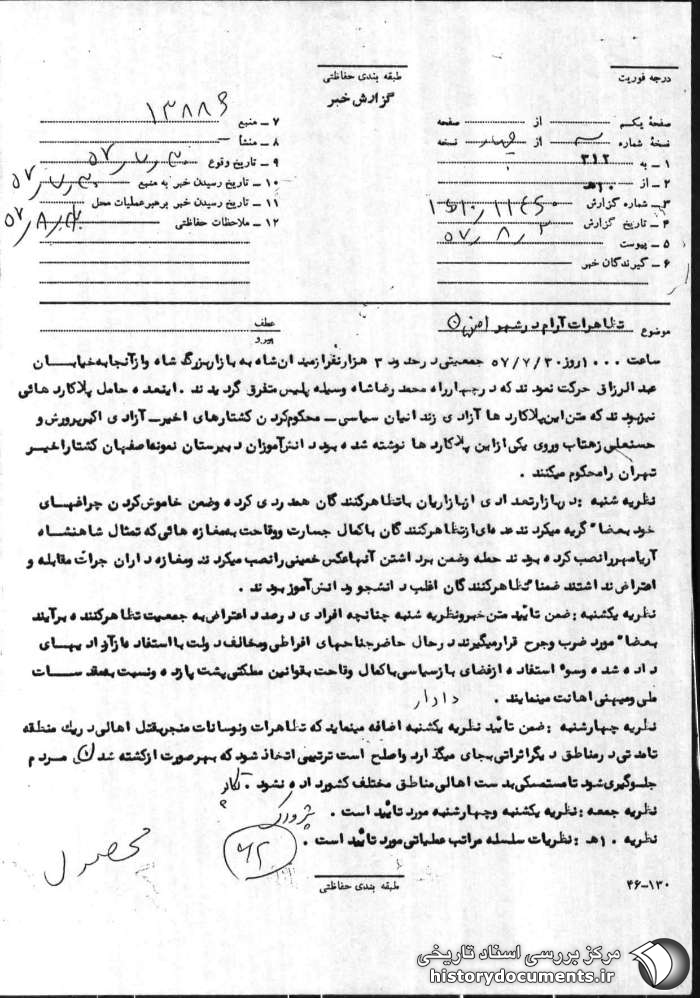 درجه فوریت
طبقه بندی حفاظتی
گزارش خبر
صفحهٔ یکم از صفحه
نسخهٔ شماره سه از چهار نسخه
۱ ـ به ۳۱۲
۲ ـ از ۱۰هـ
۳ ـ شماره گزارش
۴ ـ تاریخ گزارش ۵۷/۸/۲
۵ ـ پیوست
۶ ـ گیرندگان خبر
۷ ـ منبع ۱۳۸۸۶
۸ ـ منشأ
۹ ـ تاریخ وقوع ۵۷/۷/۳۰
۱۰ ـ تاریخ رسیدن خبر به منبع ۵۷/۷/۳۰
۱۱ ـ تاریخ رسیدن خبر برهبرعملیات محل
۱۲ ـ ملاحظات حفاظتی
موضوع تظاهرات آرام در شهر اصفهان
عطف
پیرو
ساعت ۱۰۰۰ روز ۵۷/۷/۳۰ جمعیتی در حدود ۳ هزار نفر از میدان شاه به بازار بزرگ شاه و از آنجا به خیابان
عبدالرزاق حرکت نمودند که در چهارراه محمد رضا شاه وسیله پلیس متفرق گردیدند . اینعده حامل پلاکاردهائی
نیز بودند که متن این پلاکاردها آزادی زندانیان سیاسی ـ محکوم کردن کشتارهای اخیر ـ آزادی اکبر پرورش و
حسنعلی زهتاب و روی یکی از این پلاکاردها نوشته شده بود دانش آموزان دبیرستان نمونه اصفهان کشتار اخیر
تهران را محکوم میکنند .
نظریه شنبه : در بازار تعدادی از بازاریان با تظاهرکنندگان همدردی کرده و ضمن خاموش کردن چراغهای
خود بعضا" گریه میکردند عده ای از تظاهرکنندگان با کمال جسارت و وقاحت به مغازه هائی که تمثال شاهنشاه
آریامهر را نصب کرده بودند حمله و ضمن برداشتن آنها عکس خمینی را نصب میکردند و مغازه داران جرأت مقابله و
اعتراض نداشتند ضمنا" تظاهرکنندگان اغلب دانشجو و دانش آموز بودند .
نظریه یکشنبه : ضمن تائید متن خبر و نظریه شنبه چنانچه افرادی درصدد اعتراض به جمعیت تظاهرکننده برآیند
بعضا" مورد ضرب و جرح قرار میگیرند در حال حاضر جناحهای افراطی و مخالف دولت با استفاده از آزادیهای
داده شده و سوء استفاده از فضای باز سیاسی با کمال وقاحت به قوانین مملکتی پشت پا زده و نسبت به مقدسات
ملی و میهنی اهانت مینمایند . دادار
نظریه چهارشنبه : ضمن تائید نظریه یکشنبه اضافه مینماید که تظاهرات و نوسانات منجر بقتل اهالی در یک منطقه
تا مدتی در مناطق دیگر اثراتی بجای میگذارد و اصلح است ترتیبی اتخاذ شود که بهر صورت از کشته شدن مردم
جلوگیری شود تا مستمسکی بدست اهالی مناطق مختلف کشور داده نشود .
نظریه جمعه : نظریه یکشنبه و چهارشنبه مورد تائید است .
نظریه ۱۰هـ : نظریات سلسله مراتب عملیاتی مورد تائید است .
طبقه بندی حفاظتی
۴۶-۱۳۰
مرکز بررسی اسناد تاریخی
historydocuments.ir